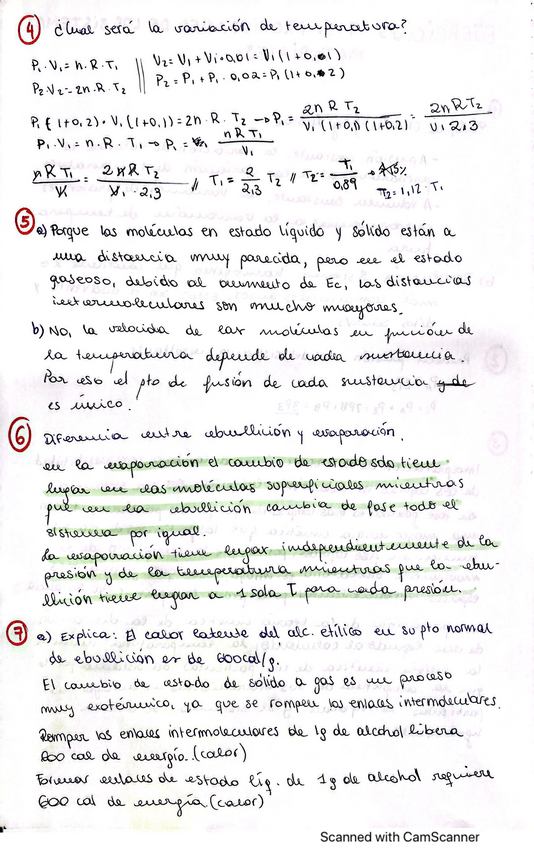 ④ ¿Cual será la variación de temperatura?
P₁·V₁=n·R·T₁ || V₂=V₁+V₁·0,01=V₁(1+0,01)
P₂·V₂=2n·R·T₂ || P₂=P₁+P₁·0,02=P₁(1+0,02)
P₁(1+0,2)·V₁(1+0,1)=2n·R·T₂ → P₁= 2nRT₂ / V₁(1+0,1)(1+0,2) = 2nRT₂ / V₁2,3
P₁·V₁=n·R·T₁ → P₁= nRT₁ / V₁
nRT₁ / V₁ = 2nRT₂ / V₁·2,3 // T₁= 2 / 2,3 T₂ // T₂= T₁ / 0,89 → T₂=1,12·T₁
⑤ a) Porque las moléculas en estado líquido y sólido están a
una distancia muy parecida, pero en el estado
gaseoso, debido al aumento de Ec, las distancias
intermoleculares son mucho mayores.
b) No, la velocida de las moléculas en función de
la temperatura depende de cada sustancia.
Por eso el pto de fusión de cada sustancia y de
es único.
⑥ Diferencia entre ebullición y evaporación.
en la evaporación el cambio de estado solo tiene
lugar en las moléculas superficiales mientras
que en la ebullición cambia de fase todo el
sistema por igual.
La evaporación tiene lugar independientemente de la
presión y de la temperatura mientras que la ebu-
llición tiene lugar a 1 sola T para cada presión.
⑦ a) Explica: El calor latente del alc. etílico en su pto normal
de ebullición es de 600cal/g.
El cambio de estado de sólido a gas es un proceso
muy exotérmico, ya que se rompen los enlaces intermoleculares.
Romper los enlaces intermoleculares de 1g de alcohol libera
600 cal de energía.(calor)
Formar enlaces de estado líq. de 1g de alcohol requiere
600 cal de energía (calor)
Scanned with CamScanner